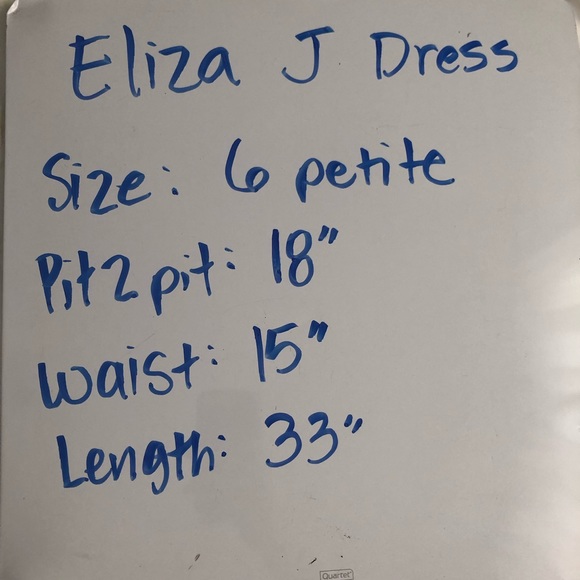 Eliza J Dress
Size: 6 petite
Pit 2 pit: 18"
Waist: 15"
Length: 33"
Quartet